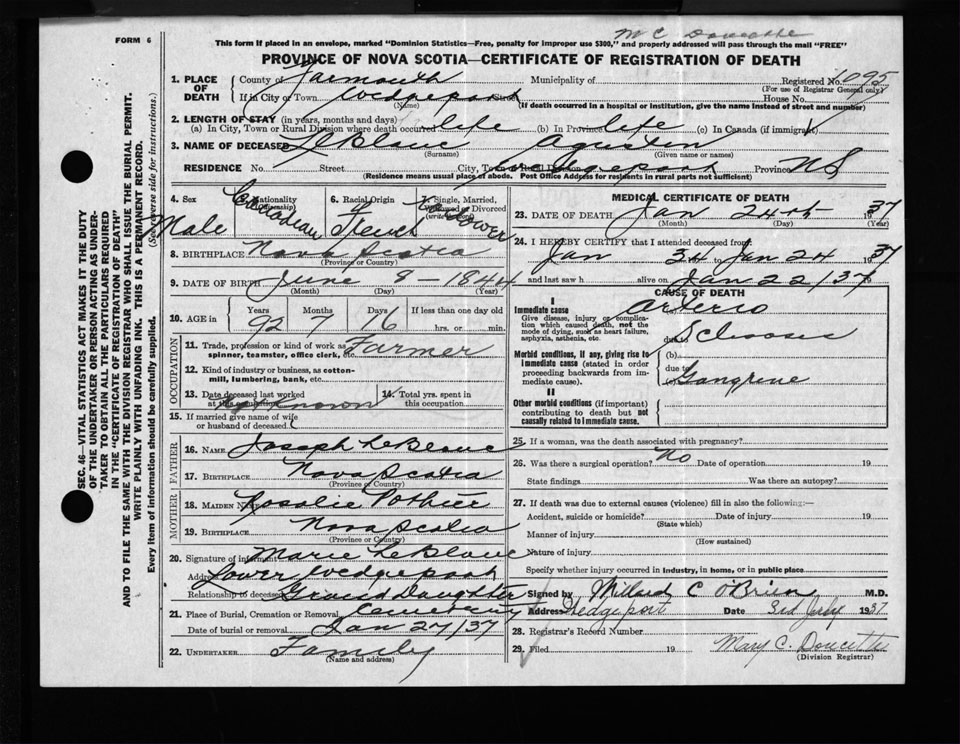 Mc Doucette
FORM 6
This form if placed in an envelope, marked "Dominion Statistics—Free, penalty for improper use $300," and properly addressed will pass through the mail "FREE"
PROVINCE OF NOVA SCOTIA—CERTIFICATE OF REGISTRATION OF DEATH
SEC. 46—VITAL STATISTICS ACT MAKES IT THE DUTY
OF THE UNDERTAKER OR PERSON ACTING AS UNDER-
TAKER TO OBTAIN ALL THE PARTICULARS REQUIRED
IN THE "CERTIFICATE OF REGISTRATION OF DEATH"
AND TO FILE THE SAME WITH THE DIVISION REGISTRAR WHO SHALL ISSUE THE BURIAL PERMIT.
WRITE PLAINLY WITH UNFADING INK. THIS IS A PERMANENT RECORD.
Every item of information should be carefully supplied. (See reverse side for instructions.)
1. PLACE OF DEATH County of Yarmouth Municipality of Registered No. 1095
(For use of Registrar General only)
If in City or Town Wedgeport Street House No.
(Name) (If death occurred in a hospital or institution, give the name instead of street and number)
2. LENGTH OF STAY (in years, months and days)
(a) In City, Town or Rural Division where death occurred life (b) In Province life (c) In Canada (if immigrant)
3. NAME OF DECEASED LeBlanc Agustin
(Surname) (Given name or names)
RESIDENCE No. Street City, Town Wedgeport Province NS
(Residence means usual place of abode. Post Office Address for residents in rural parts not sufficient)
4. Sex Male
5. Nationality (Citizenship) Canadian
6. Racial Origin French
7. Single, Married, Widowed or Divorced (write the word) Widower
8. BIRTHPLACE Nova Scotia
(Province or Country)
9. DATE OF BIRTH June 8 1844
(Month) (Day) (Year)
10. AGE in Years Months Days If less than one day old
92 7 16 hrs. or min.
OCCUPATION
11. Trade, profession or kind of work as spinner, teamster, office clerk, etc. Farmer
12. Kind of industry or business, as cotton-mill, lumbering, bank, etc.
13. Date deceased last worked at this occupation unknown
14. Total yrs. spent in this occupation.
15. If married give name of wife or husband of deceased
FATHER
16. NAME Joseph LeBlanc
17. BIRTHPLACE Nova Scotia
(Province or Country)
MOTHER
18. MAIDEN NAME Rosalie Pothier
19. BIRTHPLACE Nova Scotia
(Province or Country)
20. Signature of informant Marie LeBlanc
Address Lower Wedgeport
Relationship to deceased Grand Daughter
21. Place of Burial, Cremation or Removal Cemetery
Date of burial or removal Jan 27/37
22. UNDERTAKER Family
(Name and address)
MEDICAL CERTIFICATE OF DEATH
23. DATE OF DEATH Jan 24th 1937
(Month) (Day) (Year)
24. I HEREBY CERTIFY that I attended deceased from:
Jan 3rd to Jan 24 1937
and last saw h alive on Jan 22/37
CAUSE OF DEATH
I
Immediate cause
Give disease, injury or complication which caused death, not the mode of dying, such as heart failure, asphyxia, asthenia, etc.
Arterio
due to
Sclerosis
Morbid conditions, if any, giving rise to immediate cause (stated in order proceeding backwards from immediate cause).
(b)
due to
Gangrene
II
Other morbid conditions (if important) contributing to death but not causally related to immediate cause.
25. If a woman, was the death associated with pregnancy?
26. Was there a surgical operation? No Date of operation 19
State findings Was there an autopsy?
27. If death was due to external causes (violence) fill in also the following:—
Accident, suicide or homicide? Date of injury 19
(State which)
Manner of injury
(How sustained)
Nature of injury
Specify whether injury occurred in industry, in home, or in public place
Signed by Millard C O'Brien M.D.
Address Wedgeport Date 3rd 1937
28. Registrar's Record Number
29. Filed 19 Mary C. Doucette
(Division Registrar)